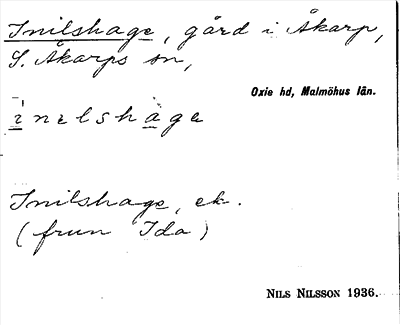 Inilshage, gård i Åkarp,
S. Åkarps sn,
Oxie hd, Malmöhus län.
ìnelshàge
Inilshage, ek.
(frun Ida)
NILS NILSSON 1936.